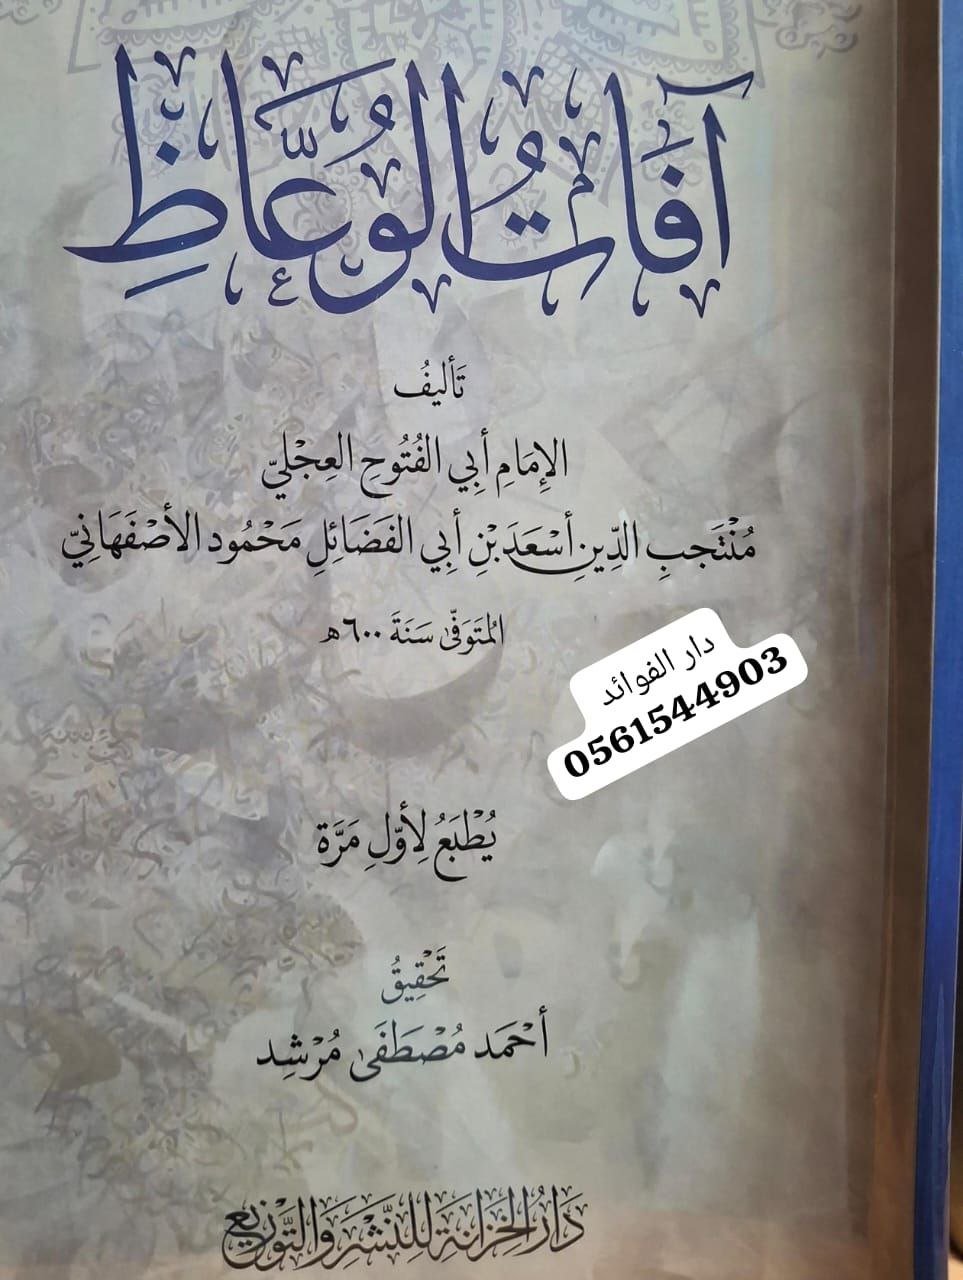 آفَاتُ الوُعَّاظِ
تَأليفُ
الإِمَامِ أَبِي الفُتُوحِ العِجْلِيّ
مُنْتَجِبِ الدِّينِ أَسْعَدَ بْنِ أَبِي الفَضَائِلِ مَحْمُود الأَصْفَهَانِيّ
المُتَوَفّى سَنَةَ ٦٠٠هـ
دار الفوائد
0561544903
يُطْبَعُ لِأَوّلِ مَرَّة
تَحْقِيقُ
أَحْمَد مُصْطَفَى مُرْشِد
دَارُ الخِزَانَةِ لِلنَّشْرِ وَالتَّوْزِيعِ